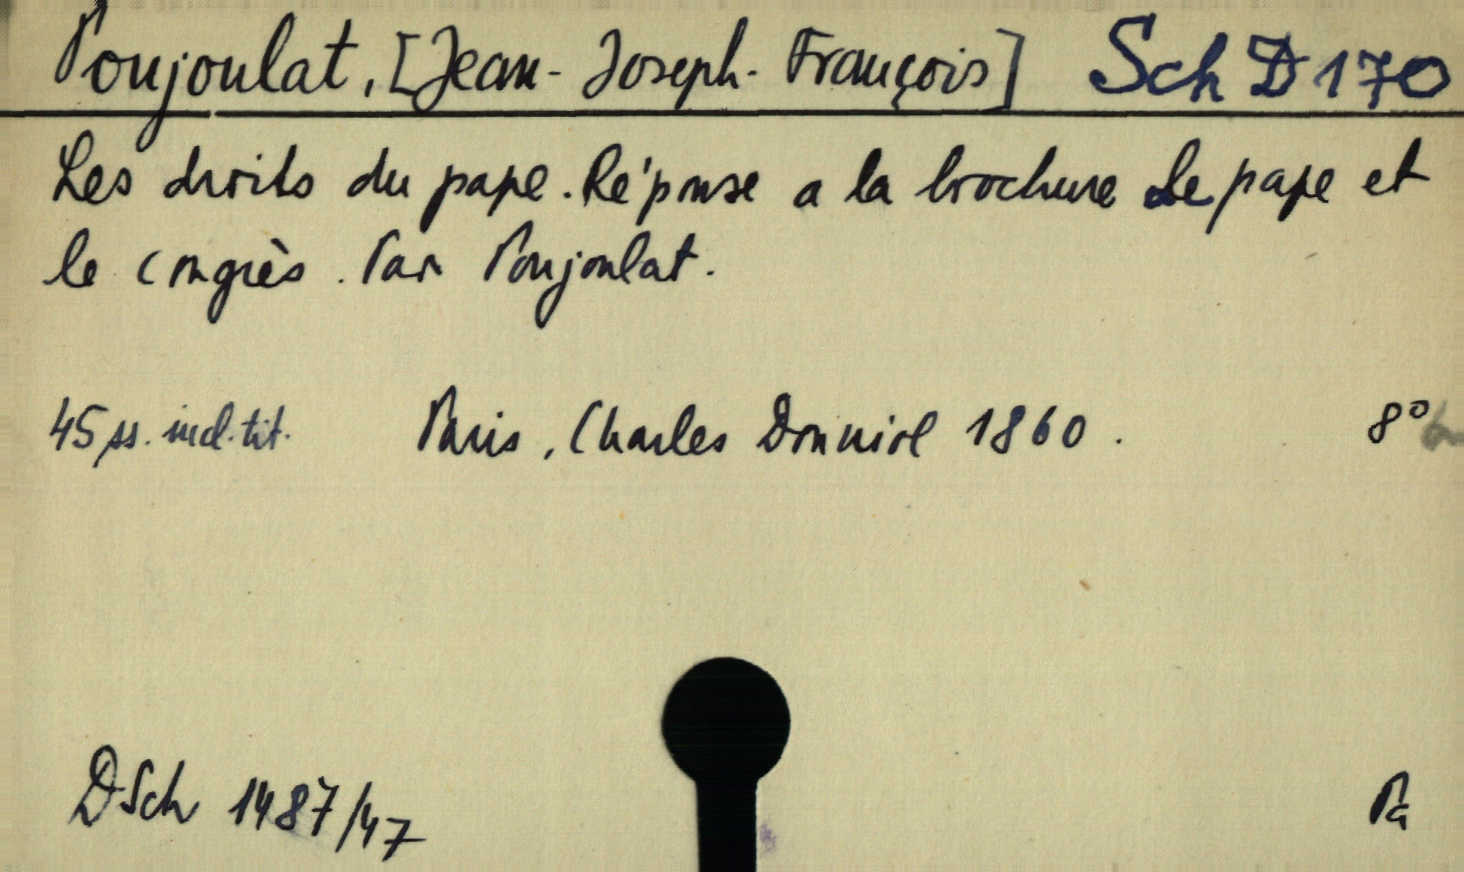 Poujoulat, [Jean-Joseph-François] Sch D 170
Les droits du pape. Réponse a la brochure Le pape et
le congrès. Par Poujoulat.
45 ss. incl. tit. Paris, Charles Donniol 1860. 8°
DSch 1487/47 Pa